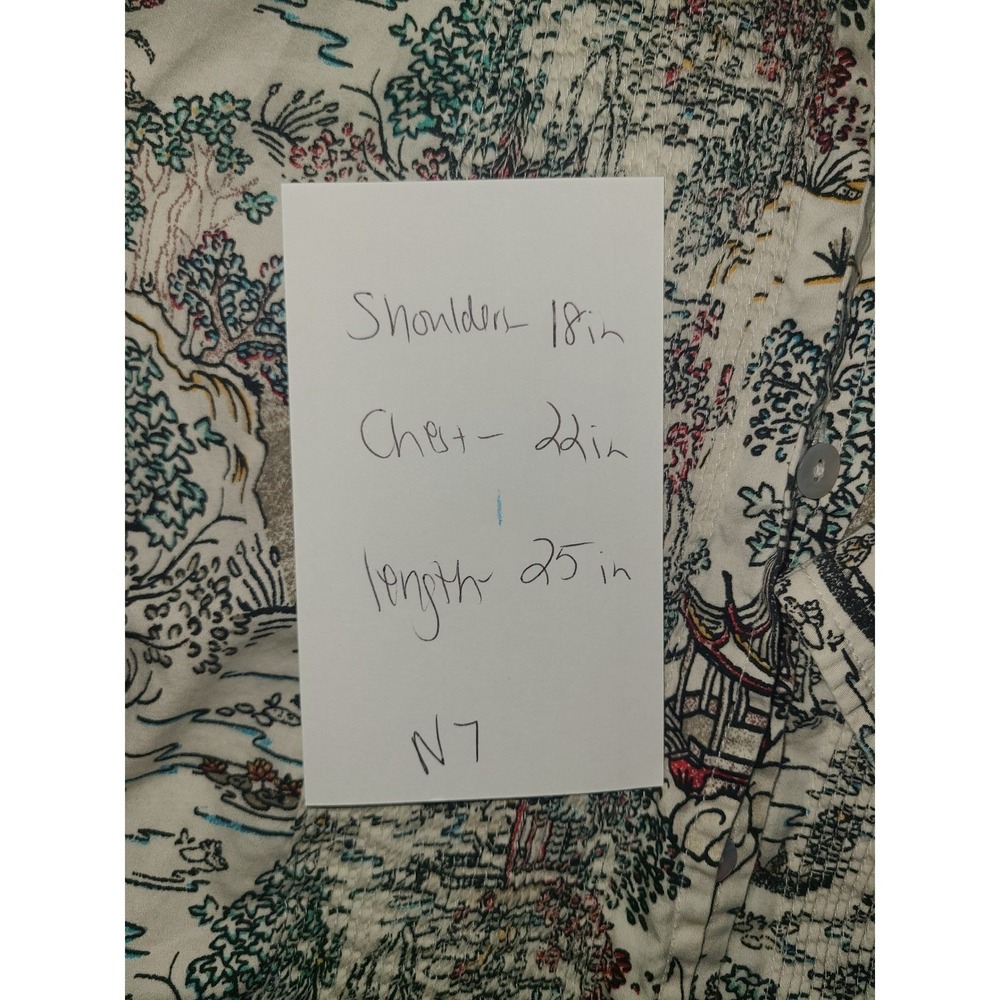 Shoulders- 18in
Chest- 22in
length- 25in
N7